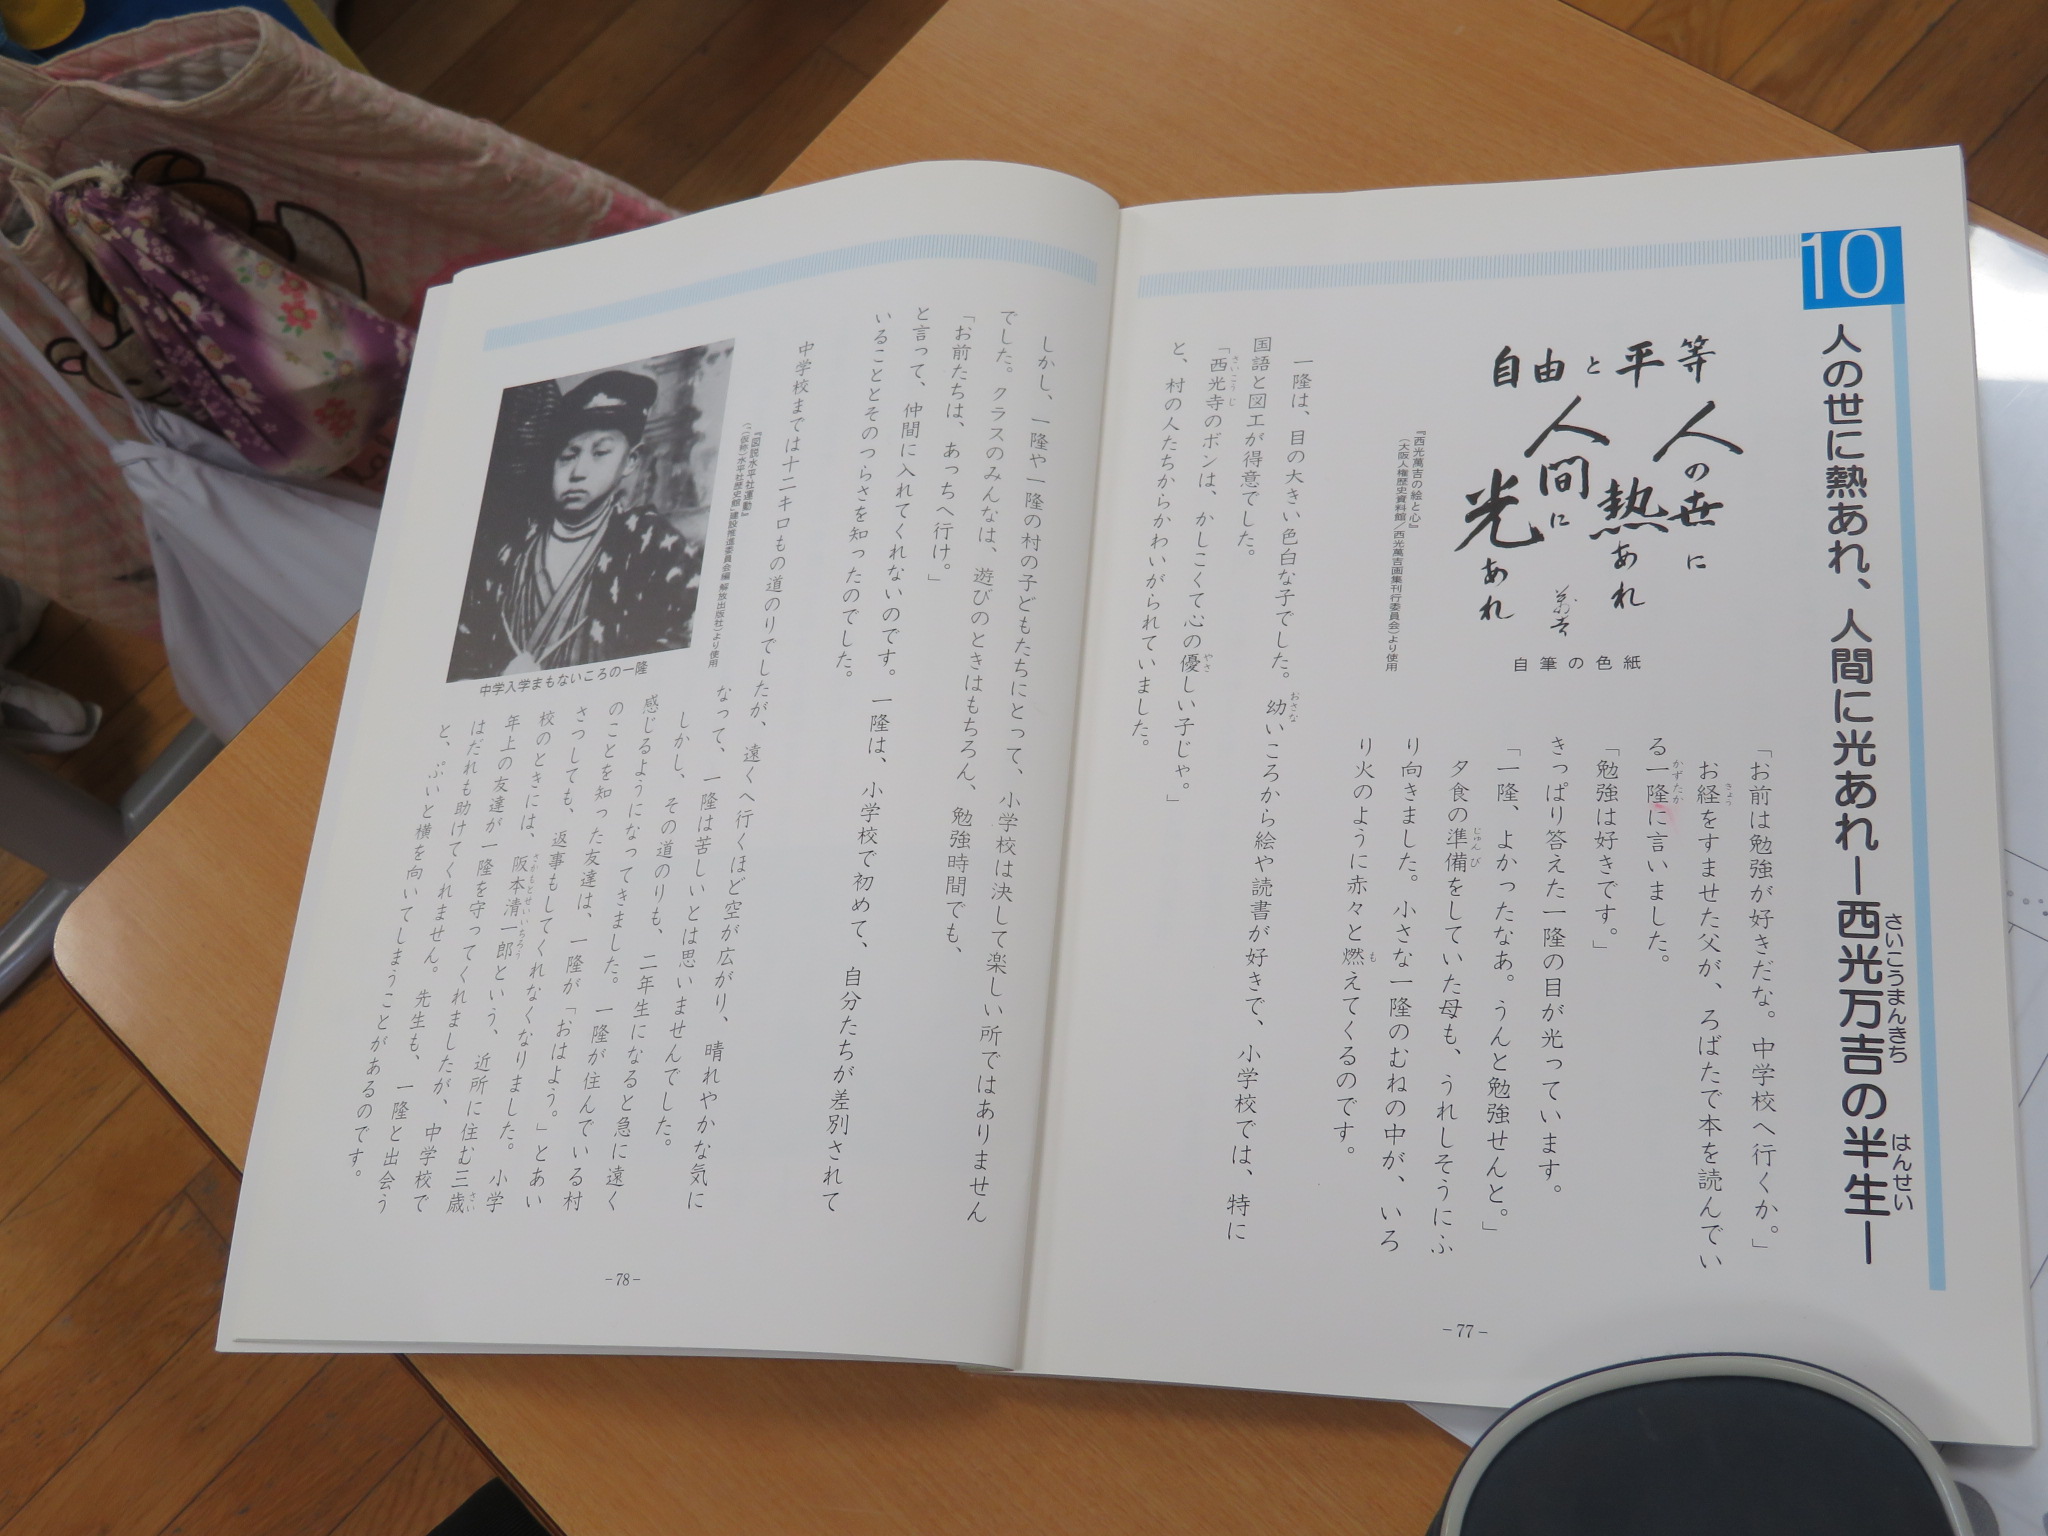 10
人の世に熱あれ、人間に光あれ―西光万吉の半生―
さいこうまんきち
はんせい
自由と平等
人の世に
熱あれ
人間に
光あれ
自筆の色紙
『西光萬吉の絵と心』
(大阪人権歴史資料館/西光萬吉画集刊行委員会)より使用
「お前は勉強が好きだな。中学校へ行くか。」
お経をすませた父が、ろばたで本を読んでい
きょう
る一隆に言いました。
かずたか
「勉強は好きです。」
きっぱり答えた一隆の目が光っています。
「一隆、よかったなあ。うんと勉強せんと。」
夕食の準備をしていた母も、うれしそうにふ
じゅんび
り向きました。小さな一隆のむねの中が、いろ
り火のように赤々と燃えてくるのです。
も
一隆は、目の大きい色白な子でした。幼いころから絵や読書が好きで、小学校では、特に
おさな
国語と図工が得意でした。
「西光寺のボンは、かしこくて心の優しい子じゃ。」
さいこうじ
やさ
と、村の人たちからかわいがられていました。
－77－
しかし、一隆や一隆の村の子どもたちにとって、小学校は決して楽しい所ではありません
でした。クラスのみんなは、遊びのときはもちろん、勉強時間でも、
「お前たちは、あっちへ行け。」
と言って、仲間に入れてくれないのです。一隆は、小学校で初めて、自分たちが差別されて
いることとそのつらさを知ったのでした。
中学校までは十二キロもの道のりでしたが、遠くへ行くほど空が広がり、晴れやかな気に
『図説水平社運動』
(「(仮称)水平社歴史館」建設推進委員会編 解放出版社)より使用
中学入学まもないころの一隆
なって、一隆は苦しいとは思いませんでした。
しかし、その道のりも、二年生になると急に遠く
感じるようになってきました。一隆が住んでいる村
のことを知った友達は、一隆が「おはよう。」とあい
さつしても、返事もしてくれなくなりました。小学
校のときには、阪本清一郎という、近所に住む三歳
さかもとせいいちろう
さい
年上の友達が一隆を守ってくれましたが、中学校で
はだれも助けてくれません。先生も、一隆と出会う
と、ぷいと横を向いてしまうことがあるのです。
－78－